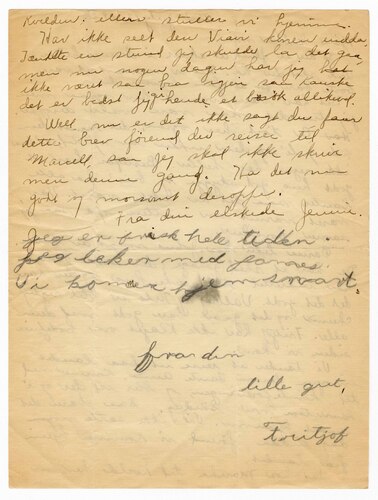 Kvelden. ellers steller vi hjemme.
Har ikke seet den Viavi konen endda.
Tænkte en stund jeg skulde la det gaa
men nu nogen dager har jeg
ikke været saa bra igjen saa kanske
det er bedst jeg hende et besök allikevel.
Well nu er det ikke sagt du faar
dette brev förend du reiser til
Marcell, saa jeg skal ikke skrive
mere denne gang. Ha det nu
godt og morsomt deroppe.
Fra din elskede Jennie.
Jeg er frisk hele tiden.
Jeg leker med James.
Vi komer hjem snart.
fra din
lille gut,
Fritjof